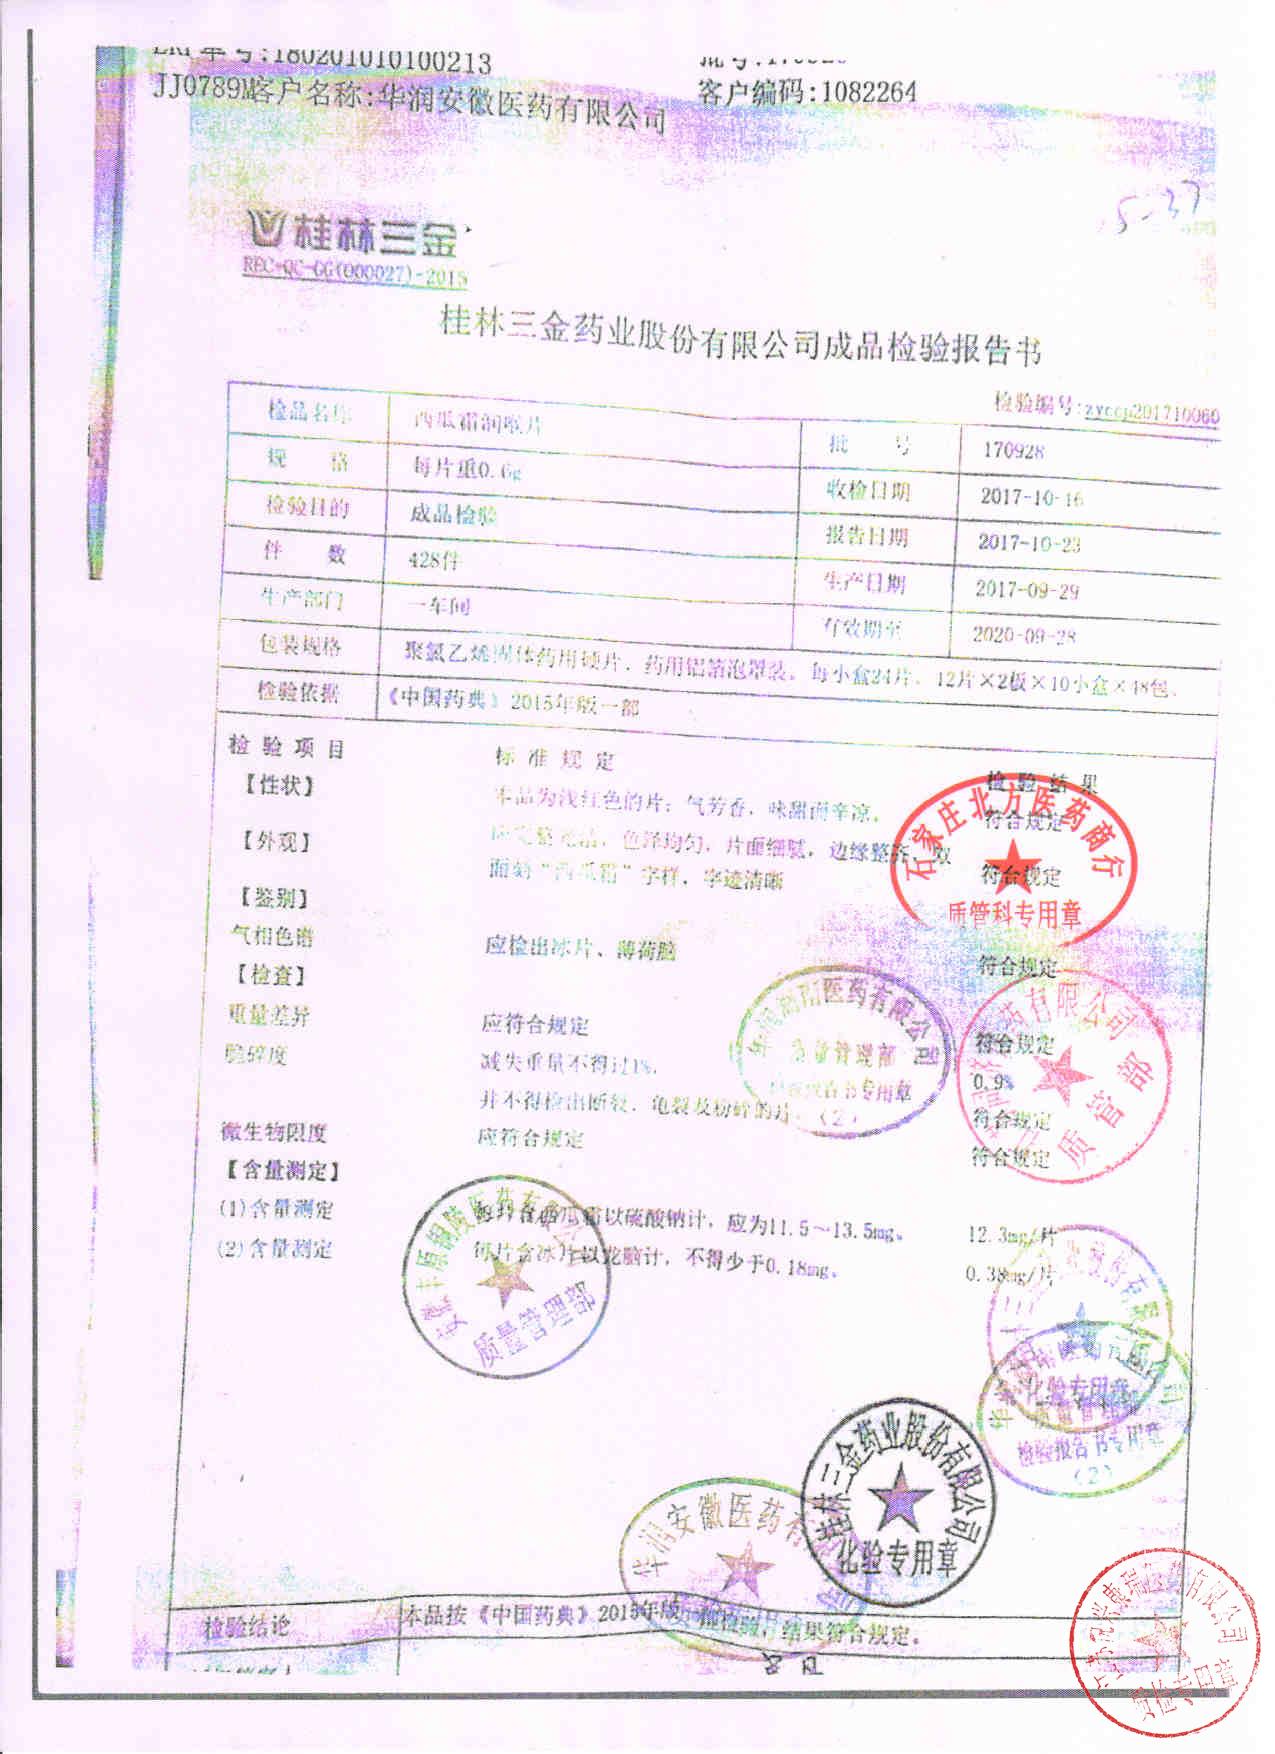 单号:180201010100213
JJ0789W客户名称:华润安徽医药有限公司
客户编码:1082264
5-37
桂林三金
REC-QC-GG(000027)-2015
桂林三金药业股份有限公司成品检验报告书
检验编号:zyccp201710060
检品名称 西瓜霜润喉片 批 号 170928
规 格 每片重0.6g 收检日期 2017-10-16
检验目的 成品检验 报告日期 2017-10-23
件 数 428件 生产日期 2017-09-29
生产部门 一车间 有效期至 2020-09-28
包装规格 聚氯乙烯固体药用硬片、药用铝箔泡罩装。每小盒24片、12片×2板×10小盒×48包。
检验依据 《中国药典》2015年版一部
检 验 项 目 标 准 规 定 检 验 结 果
【性状】 本品为浅红色的片；气芳香，味甜而辛凉。 符合规定
【外观】 完整光洁，色泽均匀，片面细腻，边缘整齐，双
面刻“西瓜霜”字样，字迹清晰 符合规定
【鉴别】
气相色谱 应检出冰片、薄荷脑 符合规定
【检查】
重量差异 应符合规定 符合规定
脆碎度 减失重量不得过1%， 0.9%
并不得检出断裂、龟裂及粉碎的片。 符合规定
微生物限度 应符合规定 符合规定
【含量测定】
(1)含量测定 每片含西瓜霜以硫酸钠计，应为11.5～13.5mg。 12.3mg/片
(2)含量测定 每片含冰片以龙脑计，不得少于0.18mg。 0.38mg/片
检验结论 本品按《中国药典》2015年版一部检验，结果符合规定。
石家庄北方医药商行
质管科专用章
华润湖南医药有限公司
质量管理部
检验报告书专用章
(2)
药有限公司
质管部
安徽丰原铜陵医药有限公司
质量管理部
化验专用章
检验报告书专用章
(2)
桂林三金药业股份有限公司
化验专用章
华润安徽医药有限公司
医药有限公司
质检专用章